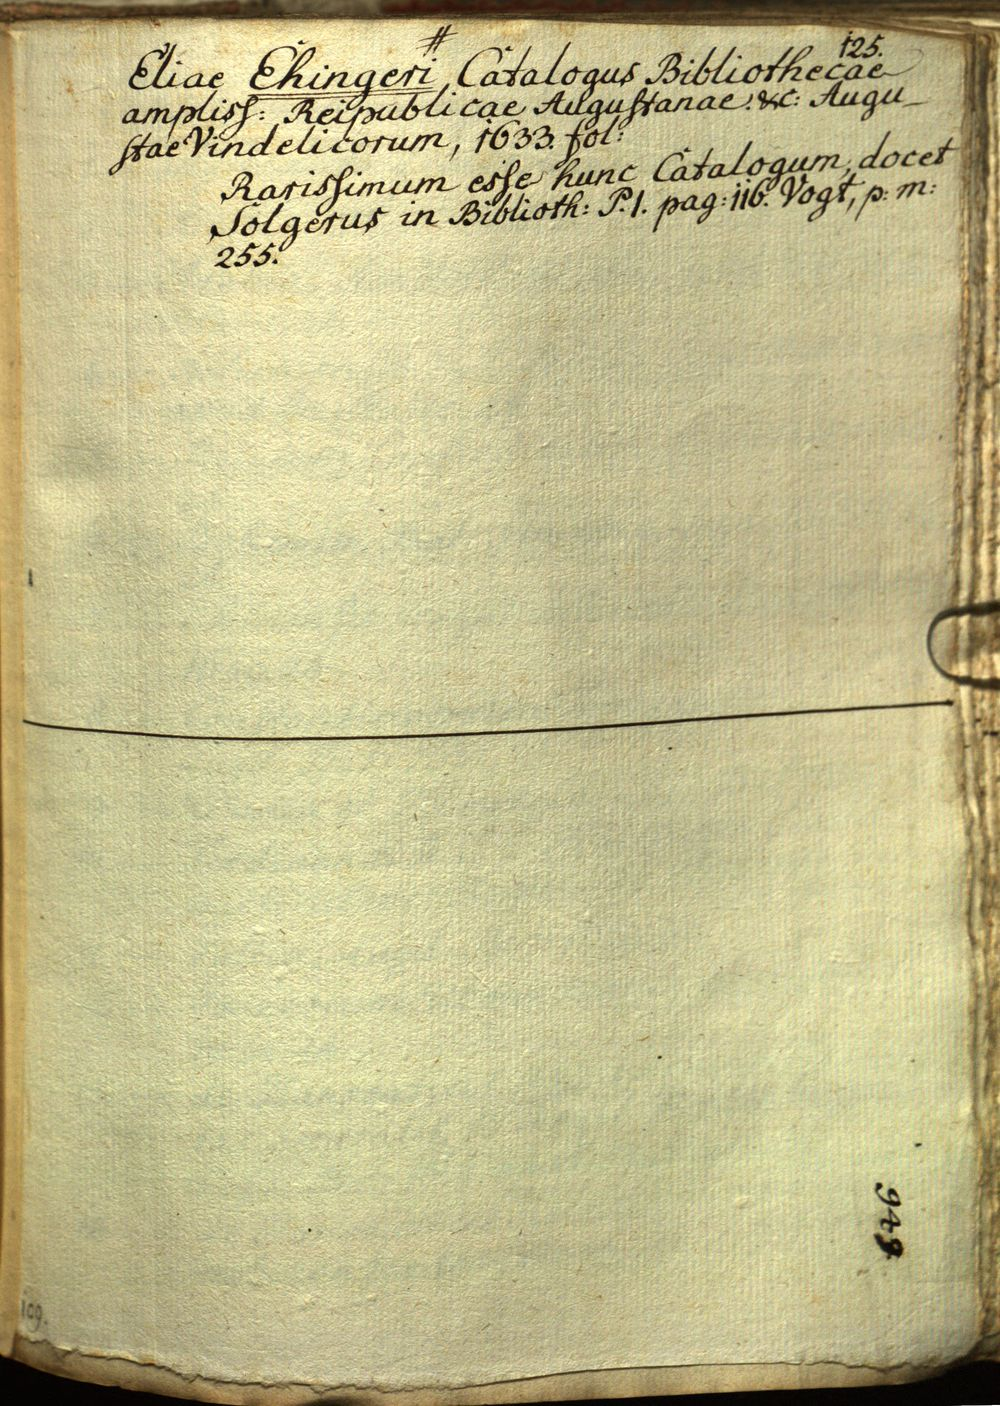 #
125.
Eliae Ehingeri, Catalogus Bibliothecae
ampliss: Reipublicae Augustanae. &c: Augu-
stae Vindelicorum, 1633. fol:
Rarissimum esse hunc Catalogum, docet
Solgerus in Biblioth: P.1. pag: 116. Vogt, p: m:
255.
109.